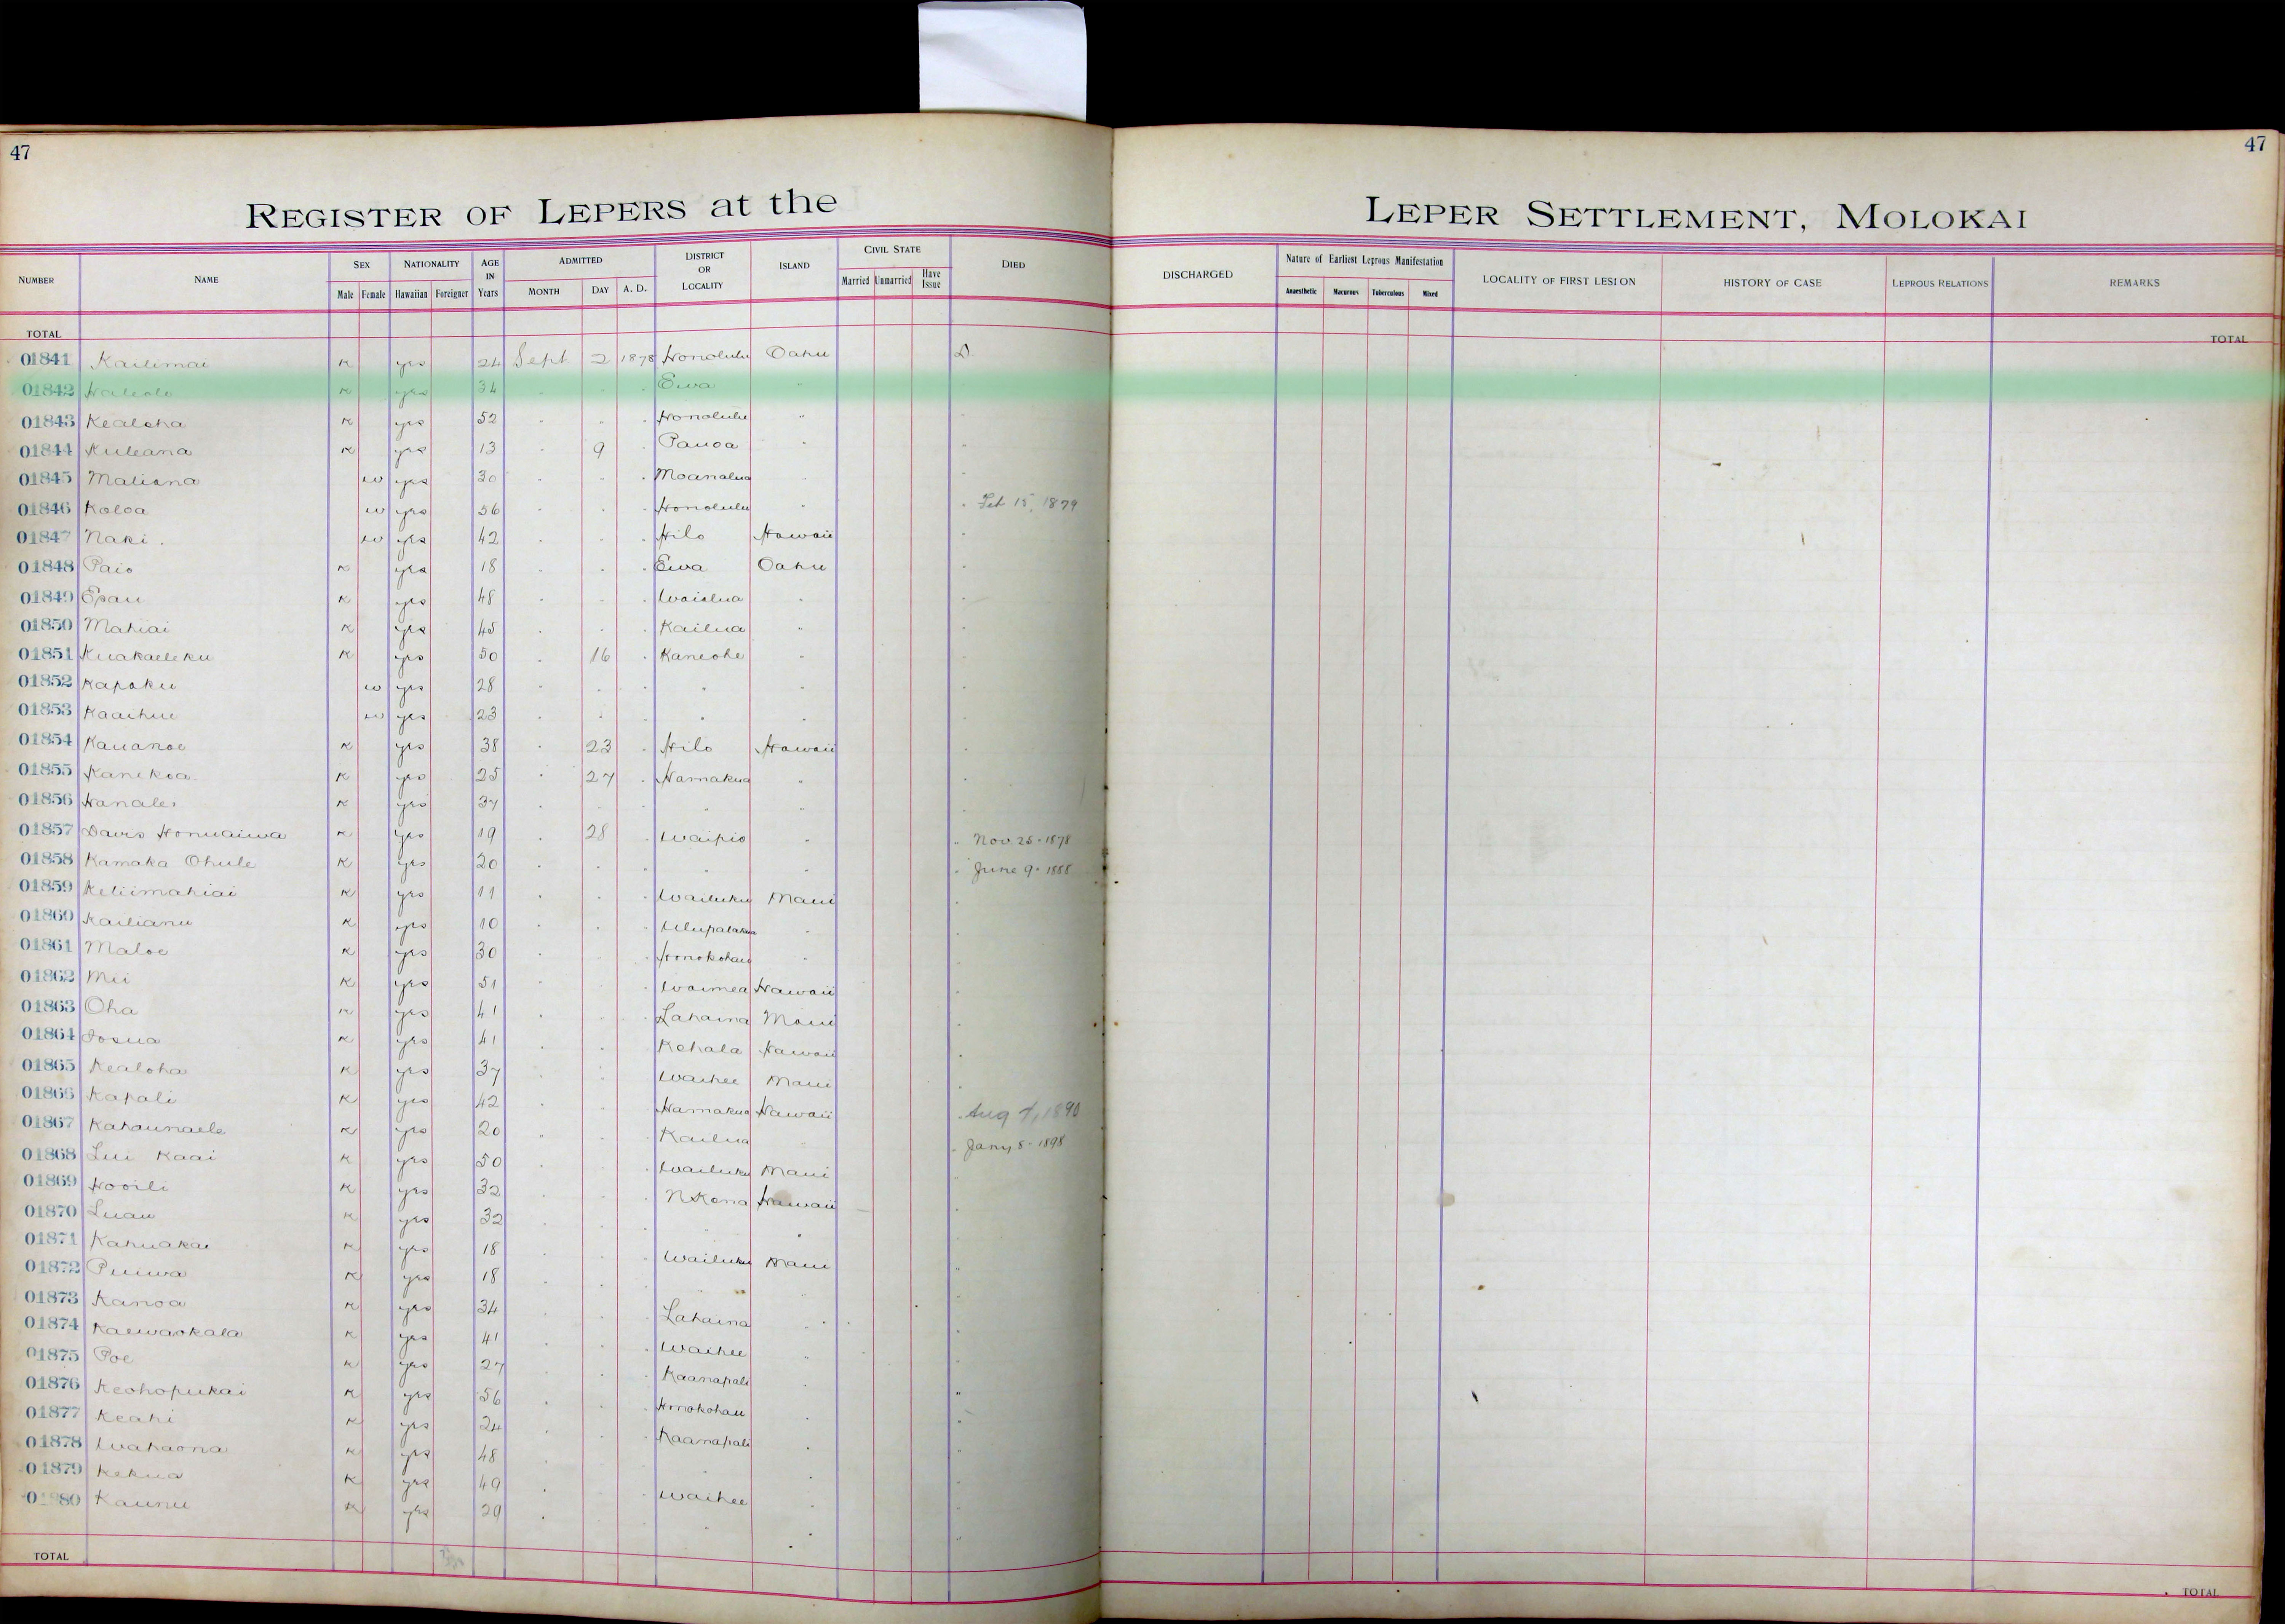 47
47
REGISTER OF LEPERS at the LEPER SETTLEMENT, MOLOKAI
NUMBER NAME SEX Male Female NATIONALITY Hawaiian Foreigner AGE IN Years ADMITTED MONTH DAY A. D. DISTRICT OR LOCALITY ISLAND CIVIL STATE Married Unmarried Have Issue DIED DISCHARGED Nature of Earliest Leprous Manifestation Anaesthetic Macurous Tuberculous Mixed LOCALITY OF FIRST LESION HISTORY OF CASE LEPROUS RELATIONS REMARKS
TOTAL TOTAL
01841 Kailimai K yes 24 Sept 2 1878 Honolulu Oahu D.
01842 Haleole K yes 34 Ewa "
01843 Kealoha K yes 52 " " " Honolulu "
01844 Kuleana K yes 13 " 9 " Pauoa "
01845 Maliana w yes 30 " " " Moanalua "
01846 Koloa w yes 56 " " " Honolulu " " Feb 15, 1879
01847 Naki w yes 42 " " " Hilo Hawaii "
01848 Paio K yes 18 " " " Ewa Oahu "
01849 Epau K yes 48 " " " Waialua "
01850 Mahiai K yes 45 " " " Kailua "
01851 Kuakaeleku K yes 50 " 16 " Kaneohe "
01852 Kapoku w yes 28 " " " "
01853 Kaaihue w yes 23 " " " "
01854 Kauanoe K yes 38 " 23 " Hilo Hawaii "
01855 Kanekoa K yes 25 " 27 " Hamakua "
01856 Hanalei K yes 37 " " " " "
01857 Davis Honuaiwa K yes 19 " 28 " Waipio " " Nov 25 - 1878
01858 Kamaka Ohule K yes 20 " " " " " " June 9 - 1888
01859 Keliimahiai K yes 11 " " " Wailuku Maui "
01860 Kailianu K yes 10 " " " Ulupalakua "
01861 Maloe K yes 30 " " " Honokohau "
01862 Mii K yes 51 " " " Waimea Hawaii "
01863 Oha K yes 41 " " " Lahaina Maui "
01864 Iosua K yes 41 " " " Kohala Hawaii "
01865 Kealoha K yes 37 " " " Waihee Maui "
01866 Kapali K yes 42 " " " Hamakua Hawaii " Aug 7, 1890
01867 Kahaunaele K yes 20 " " " Kailua " " Jany 8 - 1898
01868 Lui Kaai K yes 50 " " " Wailuku Maui "
01869 Hooili K yes 32 " " " N Kona Hawaii "
01870 Luau K yes 32 " " " " "
01871 Kahuakai K yes 18 " " " Wailuku Maui "
01872 Puiwa K yes 18 " " " " "
01873 Kanoa K yes 34 " " " Lahaina "
01874 Kaewaokala K yes 41 " " " Waihee "
01875 Poe K yes 27 " " " Kaanapali "
01876 Keohopukai K yes 56 " " " Honokohau "
01877 Keahi K yes 24 " " " Kaanapali "
01878 Wahaona K yes 48 " " " " "
01879 Kekua K yes 49 " " " Waihee "
01880 Kaunu K yes 29 " " " " "
TOTAL TOTAL